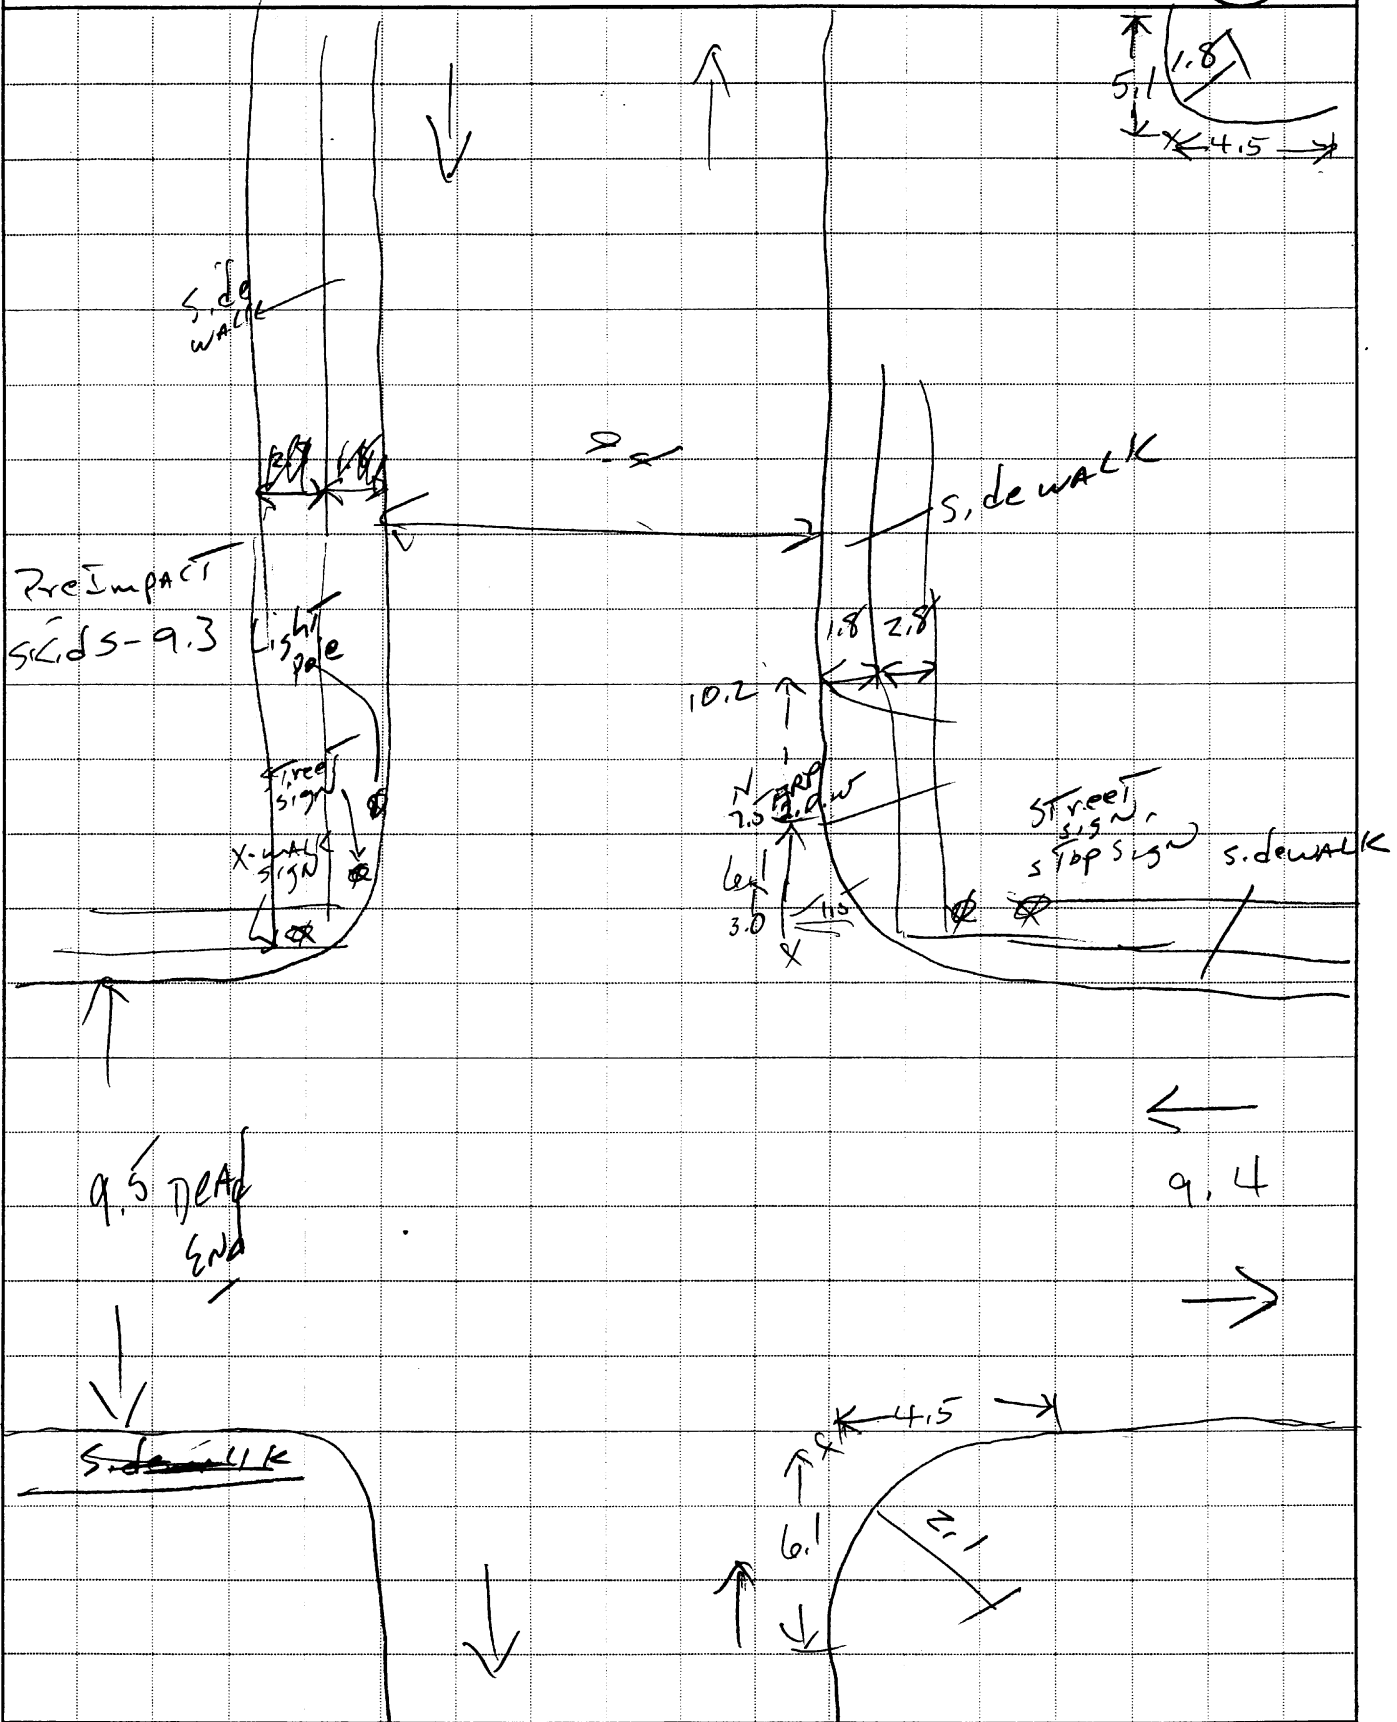 1.8
5.1
4.5
Side
WALK
SideWALK
PreImpACT
SKids-9.3
LighT
pole
1.8 2.8
10.2
STreeT
sign
X-WALK
sign
N
7.5
6.1
3.0
1.5
STreeT
sign
sTop Sign
SidewALK
9.5 DeAd
End
9.4
Sidewalk
4.5
6.1
2.1